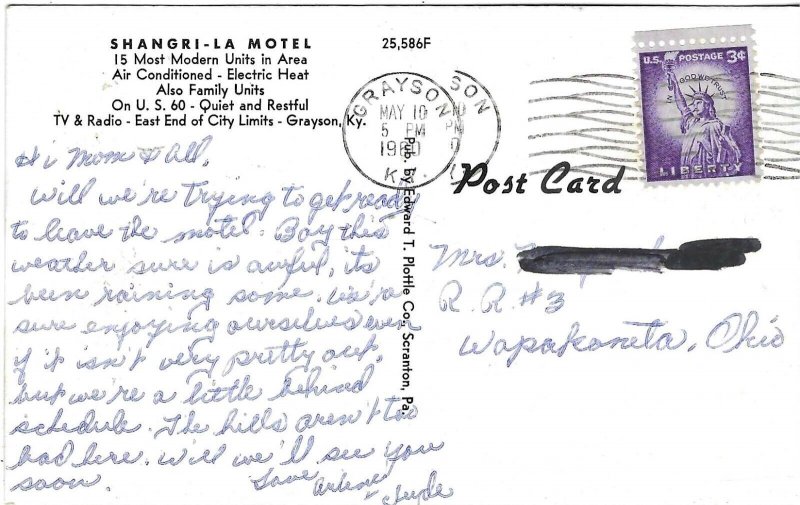 SHANGRI-LA MOTEL
15 Most Modern Units in Area
Air Conditioned - Electric Heat
Also Family Units
On U. S. 60 - Quiet and Restful
TV & Radio - East End of City Limits - Grayson, Ky.
25,586F
GRAYSON
MAY 10
5 PM
1960
KY.
SON
10
PM
U.S. POSTAGE 3¢
IN GOD WE TRUST
LIBERTY
Post Card
Pub. By Edward T. Plottle Co., Scranton, Pa.
Hi Mom & All,
Will we're trying to get ready
to leave the motel. Boy this
weather sure is awful, its
been raining some. We're
sure enjoying ourselves even
if it isn't very pretty out,
but we're a little behind
schedule. The hills aren't too
bad here. Will we'll see you
soon. Love Arlene
& Clyde
Mrs.
R. R. #3
Wapakoneta, Ohio